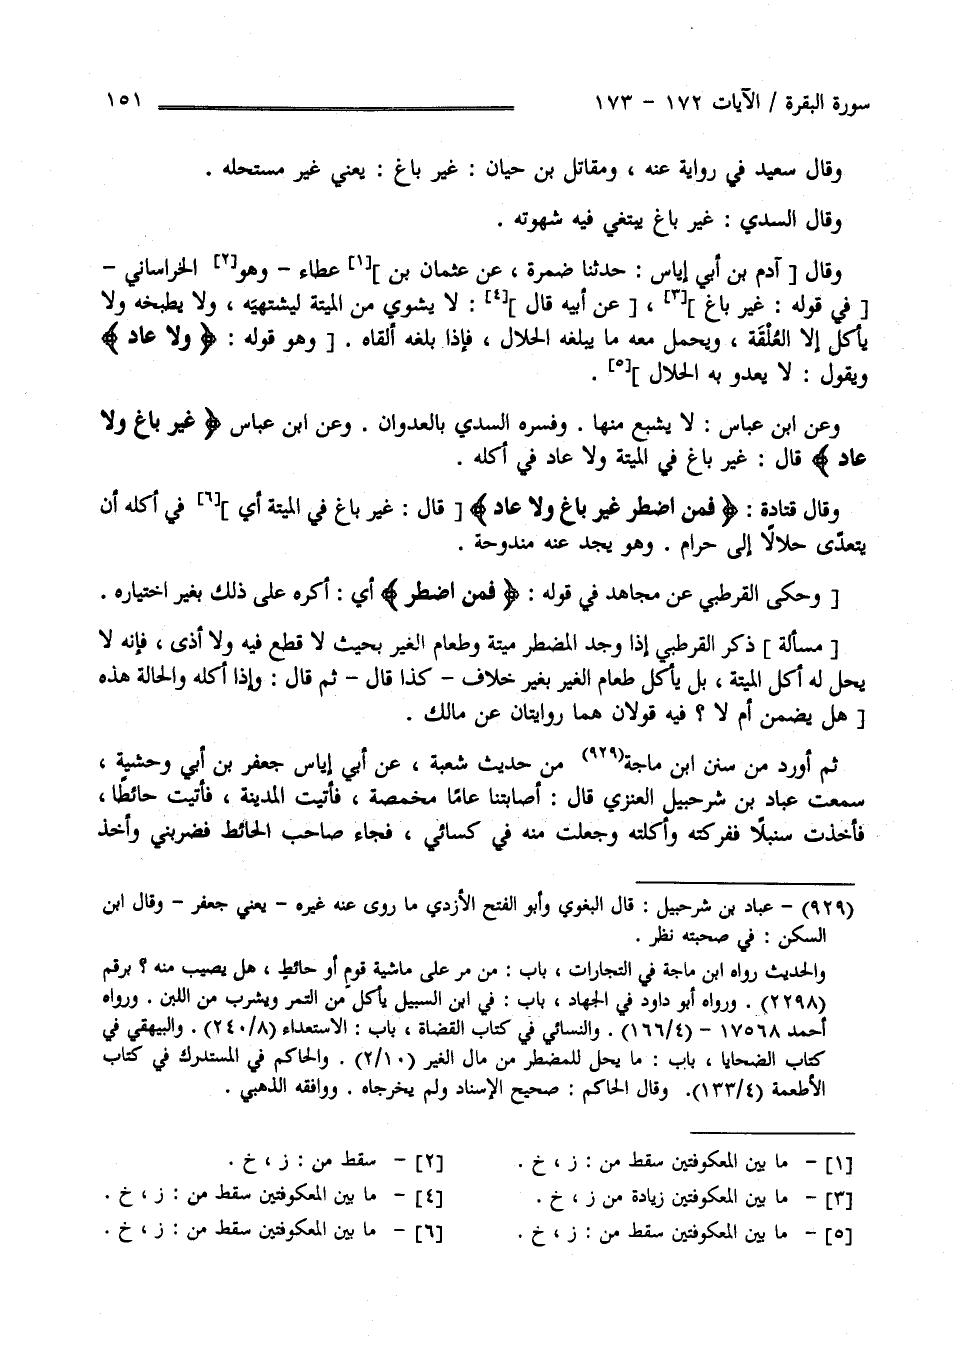 سورة البقرة / الآيات ١٧٢ - ١٧٣ ١٥١
وقال سعيد في رواية عنه ، ومقاتل بن حيان : غير باغ : يعني غير مستحله .
وقال السدي : غير باغ يبتغي فيه شهوته .
وقال [ آدم بن أبي إياس : حدثنا ضمرة ، عن عثمان بن ][١] عطاء - وهو[٢] الخراساني -
[ في قوله : غير باغ ][٣] ، [ عن أبيه قال ][٤] : لا يشوي من الميتة ليشتهيّه ، ولا يطبخه ولا
يأكل إلا العُلْقَة ، ويحمل معه ما يبلغه الحلال ، فإذا بلغه ألقاه . [ وهو قوله : ﴿ ولا عاد ﴾
ويقول : لا يعدو به الحلال ][٥] .
وعن ابن عباس : لا يشبع منها . وفسره السدي بالعدوان . وعن ابن عباس ﴿ غير باغ ولا
عاد ﴾ قال : غير باغ في الميتة ولا عاد في أكله .
وقال قتادة : ﴿ فمن اضطر غير باغ ولا عاد ﴾ [ قال : غير باغ في الميتة أي ][٦] في أكله أن
يتعدّى حلالًا إلى حرام . وهو يجد عنه مندوحة .
[ وحكى القرطبي عن مجاهد في قوله : ﴿ فمن اضطر ﴾ أي : أكره على ذلك بغير اختياره .
[ مسألة ] ذكر القرطبي إذا وجد المضطر ميتة وطعام الغير بحيث لا قطع فيه ولا أذى ، فإنه لا
يحل له أكل الميتة ، بل يأكل طعام الغير بغير خلاف - كذا قال - ثم قال : وإذا أكله والحالة هذه
[ هل يضمن أم لا ؟ فيه قولان هما روايتان عن مالك .
ثم أورد من سنن ابن ماجة(٩٢٩) من حديث شعبة ، عن أبي إياس جعفر بن أبي وحشية ،
سمعت عباد بن شرحبيل العنزي قال : أصابتنا عامًا مخمصة ، فأتيت المدينة ، فأتيت حائطًا ،
فأخذت سنبلًا ففركته وأكلته وجعلت منه في كسائي ، فجاء صاحب الحائط فضربني وأخذ
(٩٢٩) - عباد بن شرحبيل : قال البغوي وأبو الفتح الأزدي ما روى عنه غيره - يعني جعفر - وقال ابن
السكن : في صحبته نظر .
والحديث رواه ابن ماجة في التجارات ، باب : من مر على ماشية قوم أو حائط ، هل يصيب منه ؟ برقم
(٢٢٩٨) . ورواه أبو داود في الجهاد ، باب : في ابن السبيل يأكل من التمر ويشرب من اللبن . ورواه
أحمد ١٧٥٦٨ - (١٦٦/٤) . والنسائي في كتاب القضاة ، باب : الاستعداء (٢٤٠/٨) . والبيهقي في
كتاب الضحايا ، باب : ما يحل للمضطر من مال الغير (٢/١٠) . والحاكم في المستدرك في كتاب
الأطعمة (١٣٣/٤). وقال الحاكم : صحيح الإسناد ولم يخرجاه . ووافقه الذهبي .
[١] - ما بين المعكوفتين سقط من : ز ، خ . [٢] - سقط من : ز ، خ .
[٣] - ما بين المعكوفتين زيادة من ز ، خ . [٤] - ما بين المعكوفتين سقط من : ز ، خ .
[٥] - ما بين المعكوفتين سقط من : ز ، خ . [٦] - ما بين المعكوفتين سقط من : ز ، خ .